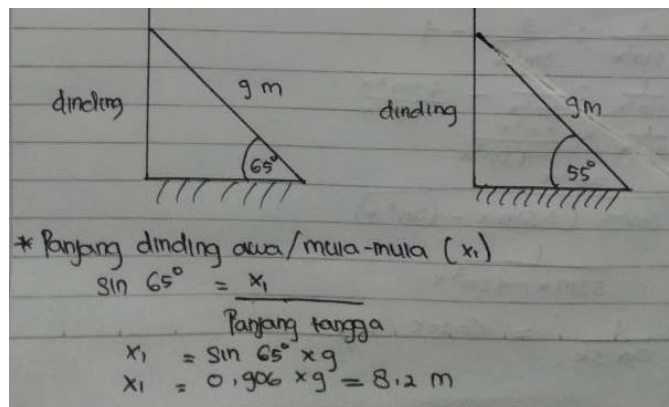 dinding 9 m 65°
dinding 9m 55°
* Panjang dinding awa/mula-mula (x₁)
sin 65° = x₁
Panjang tangga
x₁ = sin 65° x 9
x₁ = 0,906 x 9 = 8.2 m